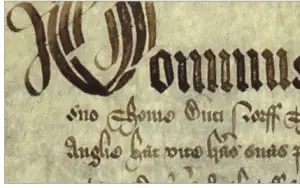 Dominus
suo Thome Duci Norff
Anglie hac vice has suas